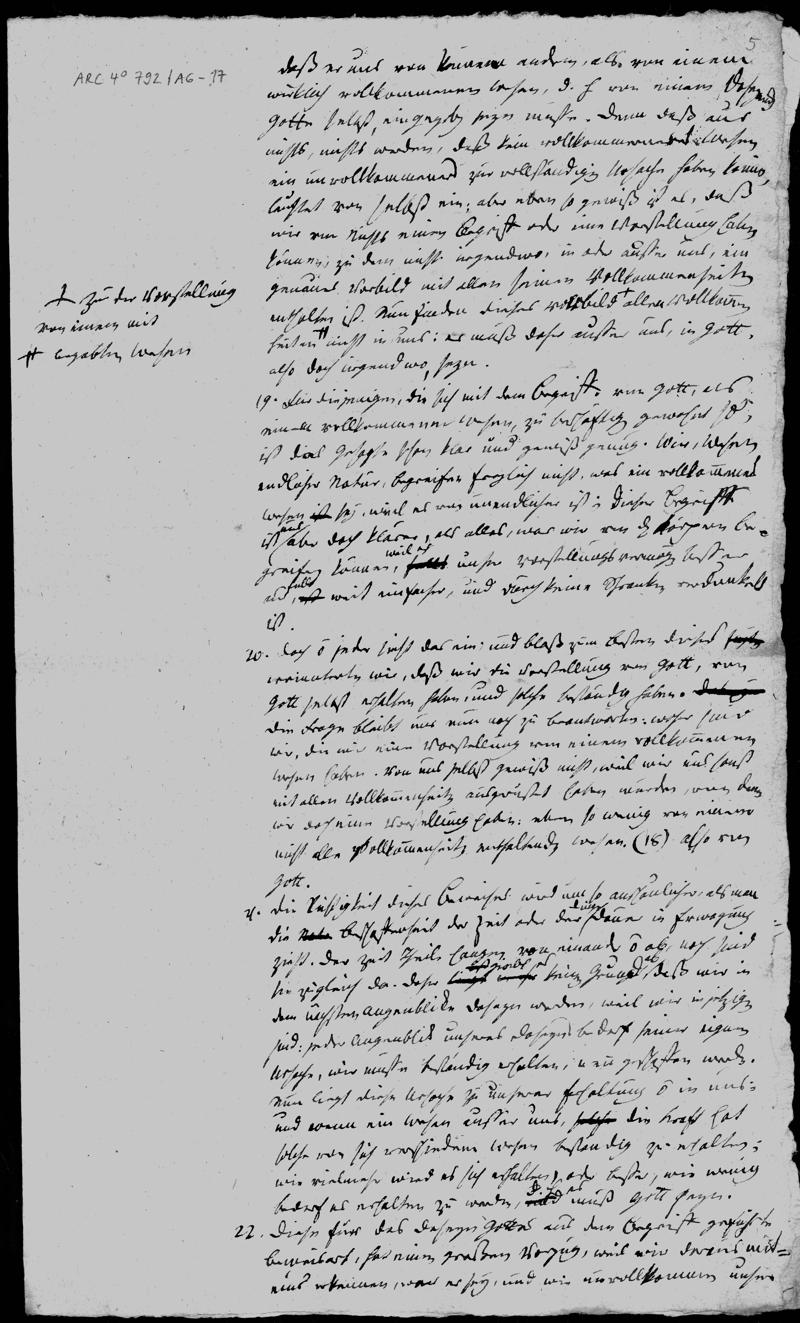 5
ARC 4° 792/A6-17
daß er uns von keinem andern, als von einem
wirklich vollkommenen Wesen, d. h. von einem
Gotte selbst, eingegeben seyn müsse. Denn daß aus
nichts, nichts werden, daß kein vollkommeneres Wesen
ein unvollkommeneres zur vollständigen Ursache haben könne,
leuchtet von selbst ein; aber eben so gewiß ist es, daß
wir von nichts einen Begriff oder eine Vorstellung haben
können, zu dem nicht irgendwo, in oder ausser uns, ein
genaues Vorbild mit allen seinen Vollkommenheiten
enthalten ist. Nun finden dieses Vorbild + aller Vollkommen
heiten # nicht in uns: es muß daher ausser uns, in Gott,
also doch irgendwo, seyn.
+ zu der Vorstellung
von einem mit
# begabten Wesen
19. Für diejenigen, die sich mit dem Begriff von Gott, als
einem vollkommenen Wesen, zu beschäftigen gewohnt sind,
ist das Gesagte schon klar und gewiß genug. Wir, Wesen
endlicher Natur, begreifen freylich nicht, was ein vollkommenes
Wesen ist sey, weil es von unendlicher ist: dieser Begriff
ist uns aber doch klarer, als alles, was wir von den Körpern be-
greifen können, weil er unser Vorstellungsvermögen besser
weit einfacher, und durch keine Schranken verdunkelt
ist.
20. Doch ō jeder sieht das ein; und blos zum Besten dieser
erinnerten wir, daß wir die Vorstellung von Gott, von
Gott selbst erhalten haben, und solche beständig haben.
die Frage bleibt uns nun noch zu beantworten: woher sind
wir, die wir eine Vorstellung von einem vollkommenen
Wesen haben. Von uns selbst gewiß nicht, weil wir uns sonst
mit allen Vollkommenheiten ausgerüstet haben würden, von denen
wir doch eine Vorstellung haben: eben so wenig von einem
nicht alle Vollkommenheiten enthaltenden Wesen. (18) also von
Gott.
21. Die Richtigkeit dieses Beweises wird um so anschaulicher, als man
die Beschaffenheit der Zeit oder der Dauer in Erwägung
zieht. Der Zeit Theile hangen von einander ō ab, noch sind
sie zugleich da. Daher kein Grund, daß wir in
dem nächsten Augenblicke daseyn werden, weil wir in jetzigen
sind: jeder Augenblick unseres Daseyns bedarf seiner eigenen
Ursache, wir müssen beständig erhalten, neu geschaffen werden.
Nun liegt diese Ursache zu unserer Erhaltung ō in uns:
und wenn ein Wesen ausser uns, die Kraft hat
solche von sich verschiedene Wesen beständig zu erhalten;
wie vielmehr wird es sich erhalten, oder besser, wie wenig
bedarf es erhalten zu werden, muß Gott seyn.
22. Diese für das Daseyn Gottes aus dem Begriff geführte
Beweisart, hat einen grossen Vorzug, weil wir daraus mit-
eins erkennen, wer er sey, und wie unvollkommen unsere